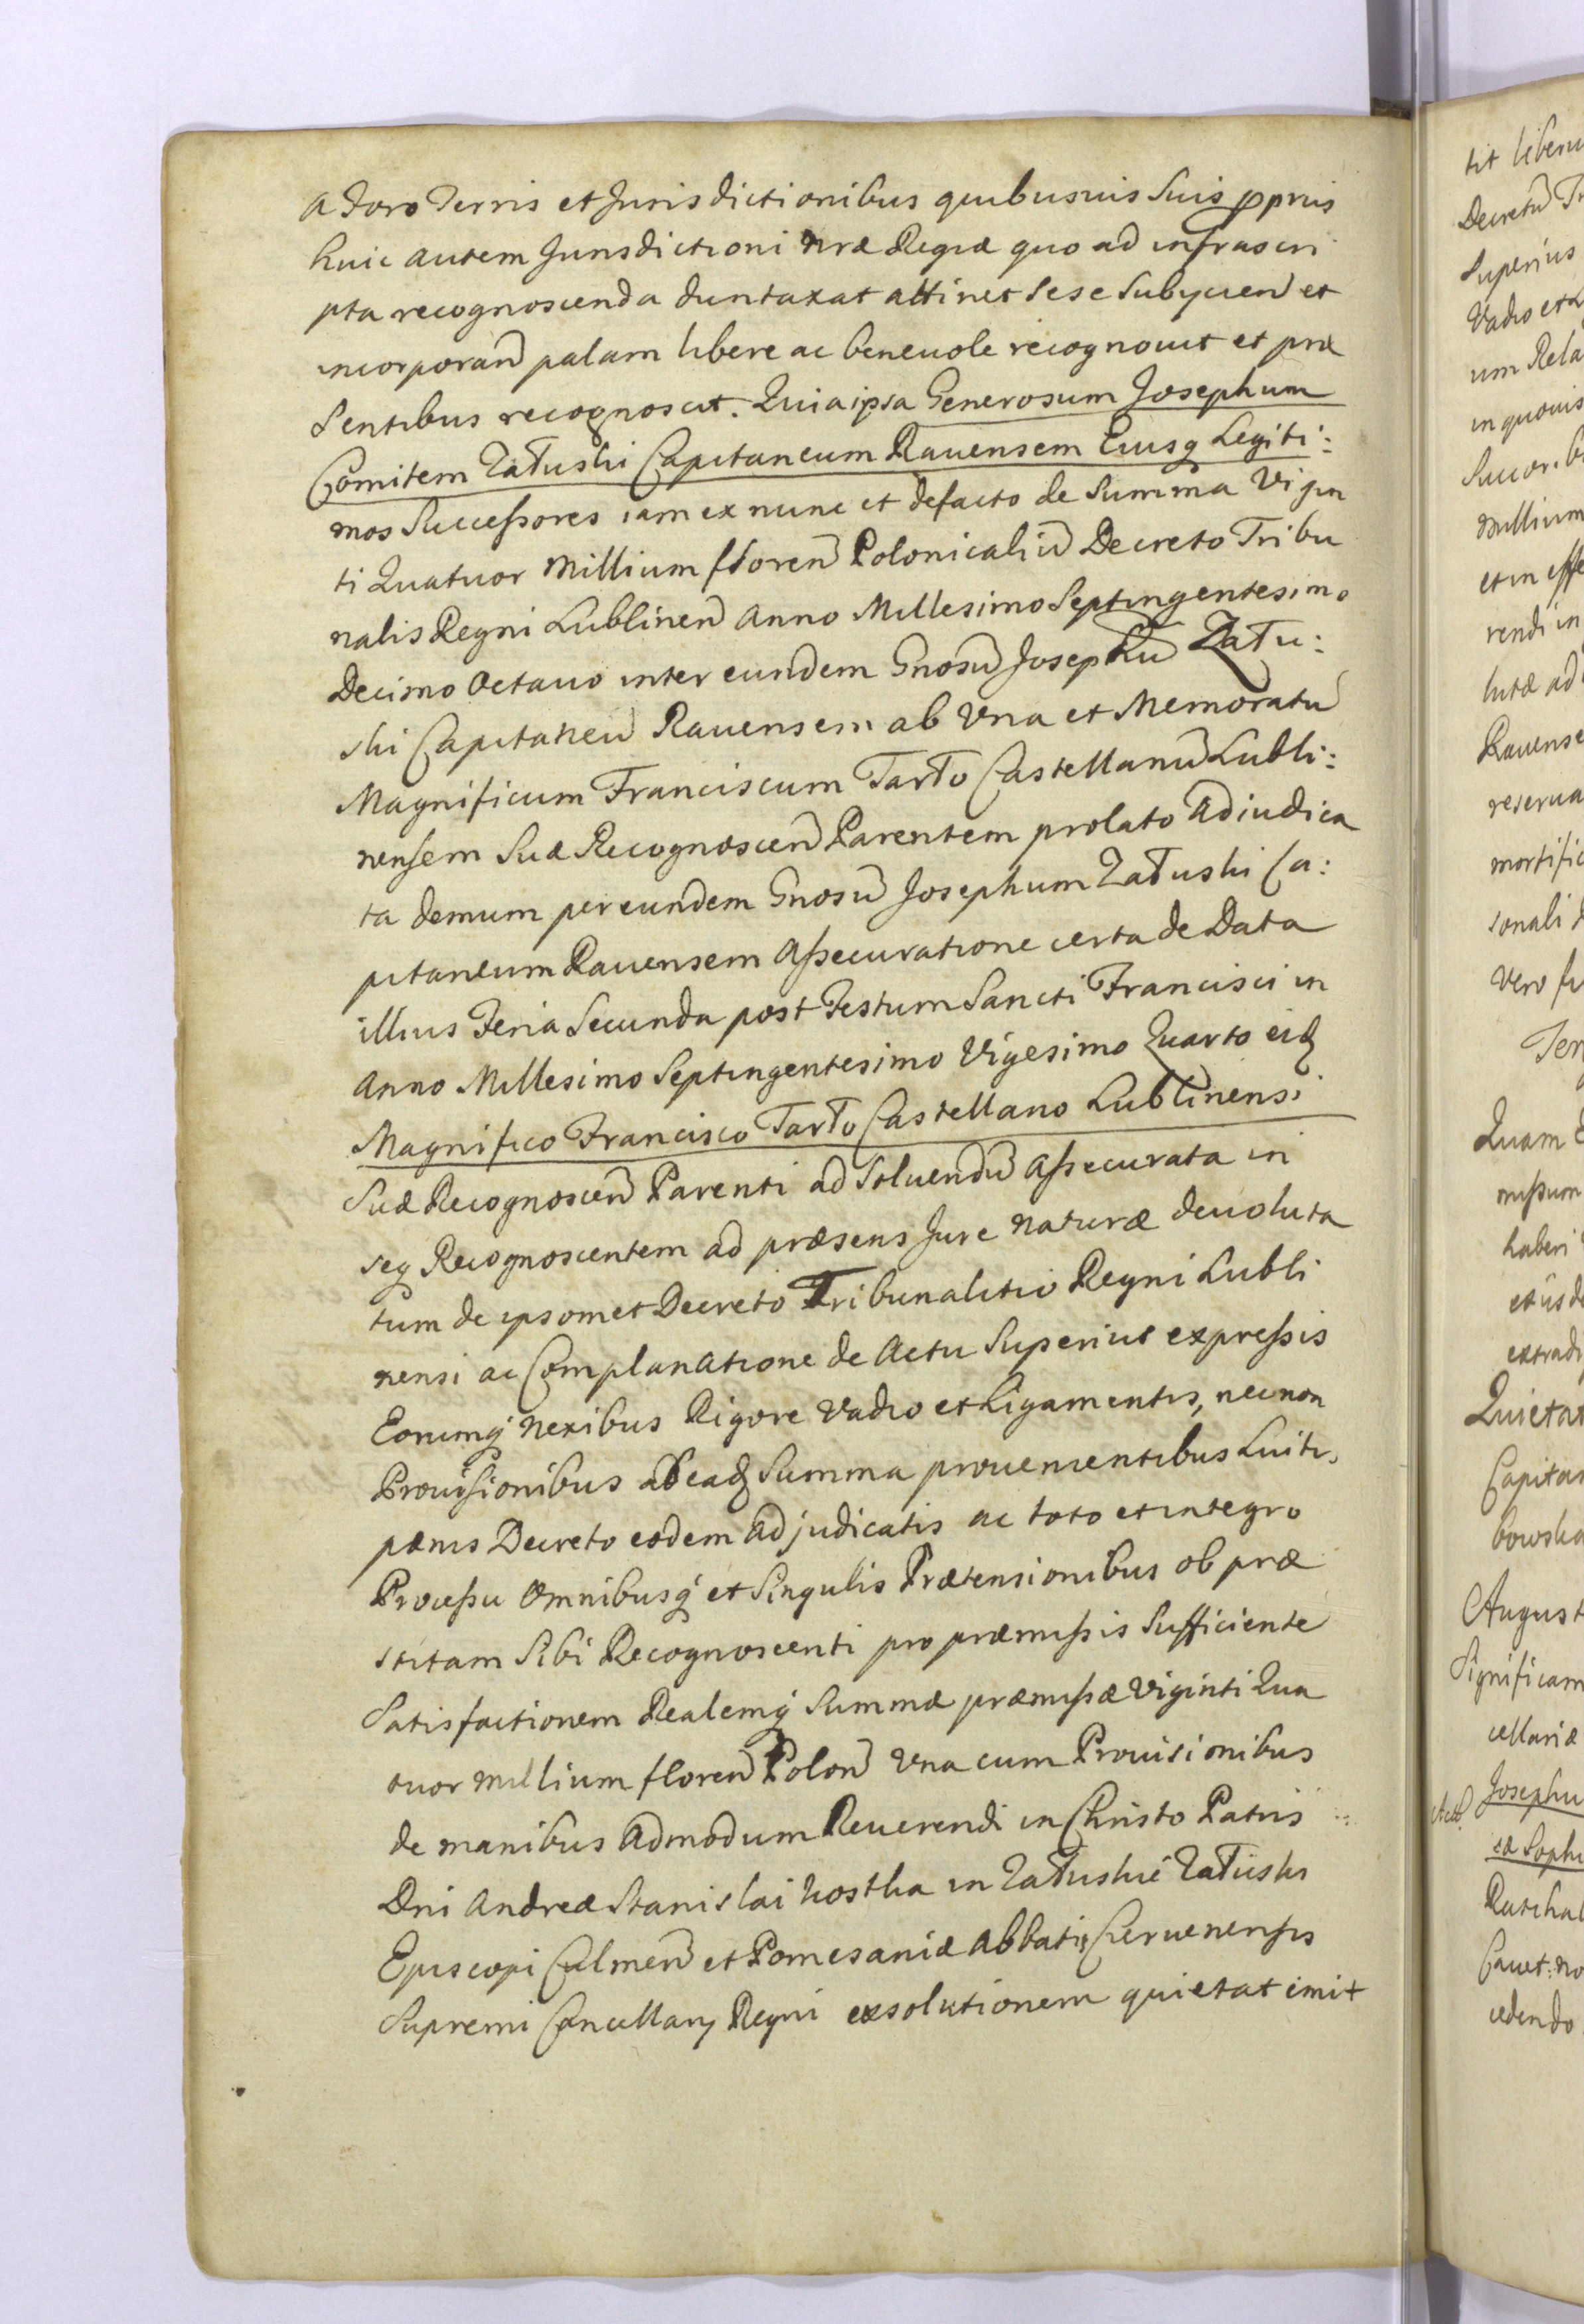 a Foro Terris et Jurisdictionibus quibusuis Suis ppriis
huic autem Jurisdictioni nræ Regiæ quo ad infrascri
pta recognoscenda duntaxat attinet Sese Subycien et
incorporan palam libere ac beneuole recognouit et præ
Sentibus recognoscit. Quia ipsa Generosum Josephum
Comitem Załuski Capitaneum Rauensem Eiusq Legiti:
mos Successores iam ex nunc et defacto de Summa Vigin
ti Quatuor Millium floren Polonicaliu Decreto Tribu
nalis Regni Lublinen Anno Millesimo Septingentesimo
Decimo Octauo inter eundem Gnosu Josephu Zału:
ski Capitaneu Rauensem ab Vna et Memoratu
Magnificum Franciscum Tarło Castellanu Lubli:
nensem Suæ Recognoscen Parentem prolato Adiudica
ta demum per eundem Gnosu Josephum Załuski Ca:
pitaneum Rauensem Assecuratione certa de Data
illius Feria Secunda post Festum Sancti Francisci in
Anno Millesimo Septingentesimo Vigesimo Quarto eid
Magnifico Francisco Tarło Castellano Lublinensi
Suæ Recognoscen Parenti ad Soluendu Assecurata in
seq Recognoscentem ad præsens Jure naturæ deuoluta
tum de ipsomet Decreto Tribunalitio Regni Lubli
nensi ac Complanatione de Actu Superius expressis
Eorumq nexibus Rigore Vadio et Ligamentis, necnon
Prouisionibus ab ead Summa prouenientibus Luiti,
pænis Decreto eodem adjudicatis ac toto et integro
Processu Omnibusq et Singulis Prætensionibus ob præ
stitam Sibi Recognoscenti pro præmissis Sufficiente
Satisfactionem Realemq Summæ præmissæ Viginti Qua
tuor millium floren Polon Vna cum Prouisionibus
de manibus Admodum Reuerendi in Christo Patris
Dni Andreæ Stanislai Kostka in Załuskie Załuski
Episcopi Culmen et Pomesaniæ Abbatis Czeruenensis
Supremi Cancellarij Regni exsolutionem quietat emit
tit liberu
Decretu Tr
Superius
Vadio et L
um Rela
in quouis
Succor.
millium
et in effe
rendi in
lutæ ad
Rauense
reserua
mortific
sonali
Vero
Quam
missum
haberi
extrad
Quietat
Capitan
bowska
August
Significam
cellariæ
Josephu
Sophi
Cauet: no
cedendo